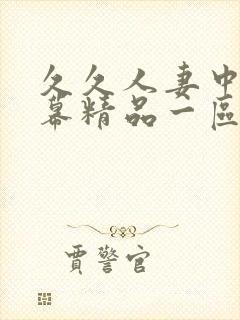 久久人妻中
幕精品一區
賈警官